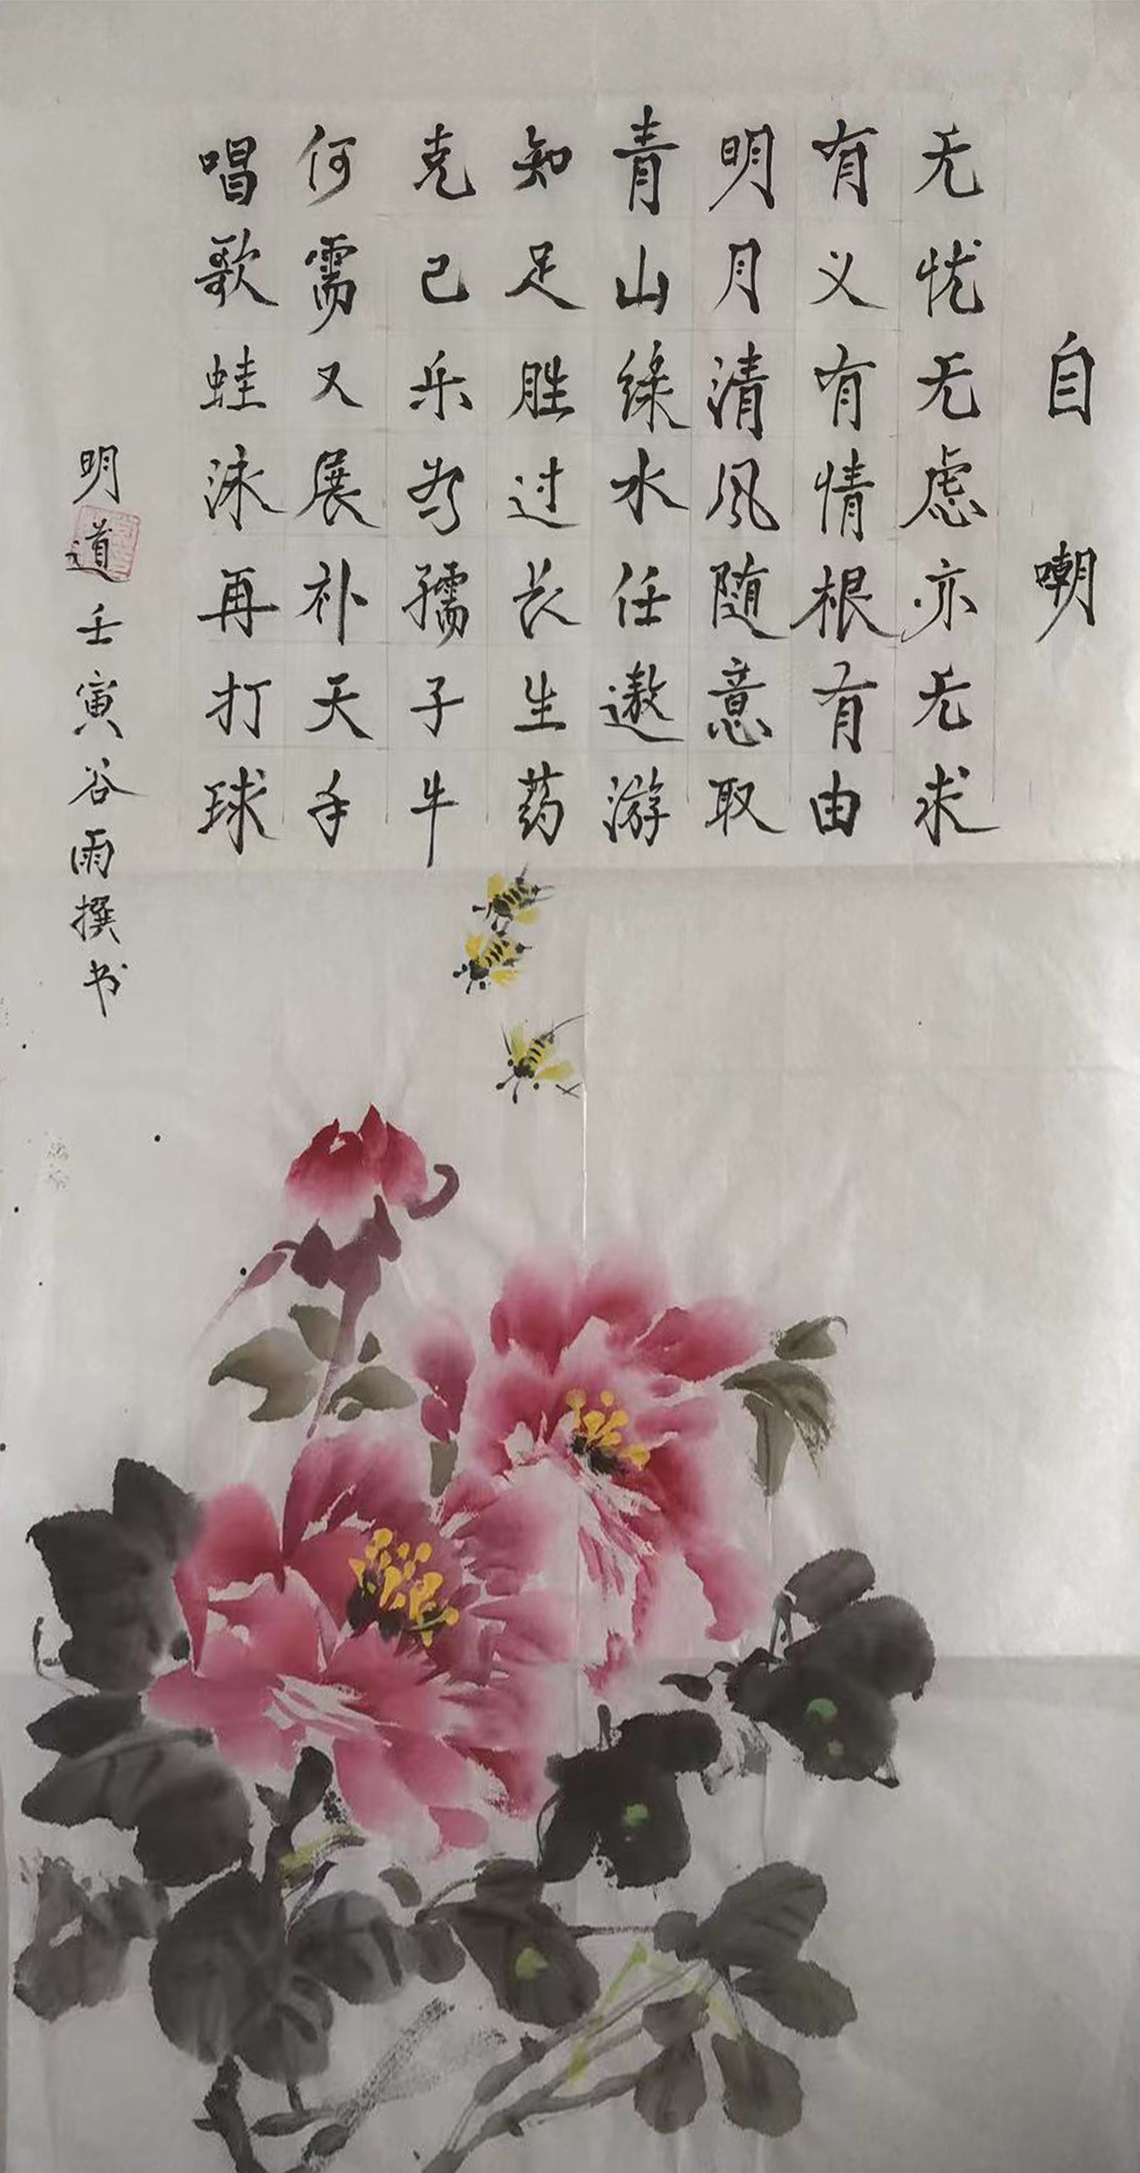 自嘲
无忧无虑亦无求
有义有情根有由
明月清风随意取
青山绿水任遨游
知足胜过长生药
克己乐为孺子牛
何需又展补天手
唱歌蛙泳再打球
明道壬寅谷雨撰书